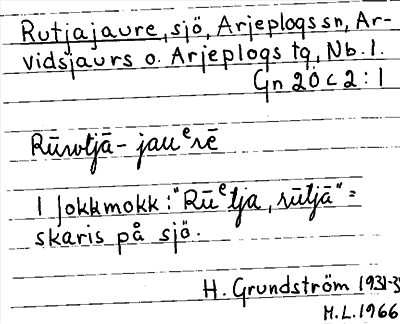 Rutjajaure, sjö, Arjeplogs sn, Ar-
vidsjaurs o. Arjeplogs tg, Nb. l.
Gn 20 c 2 : 1
Rūwtjā - jauᵉrē
I Jokkmokk: "Rūᵉtja, rūtjā" =
skaris på sjö.
H. Grundström 1931-3
M.L. 1966